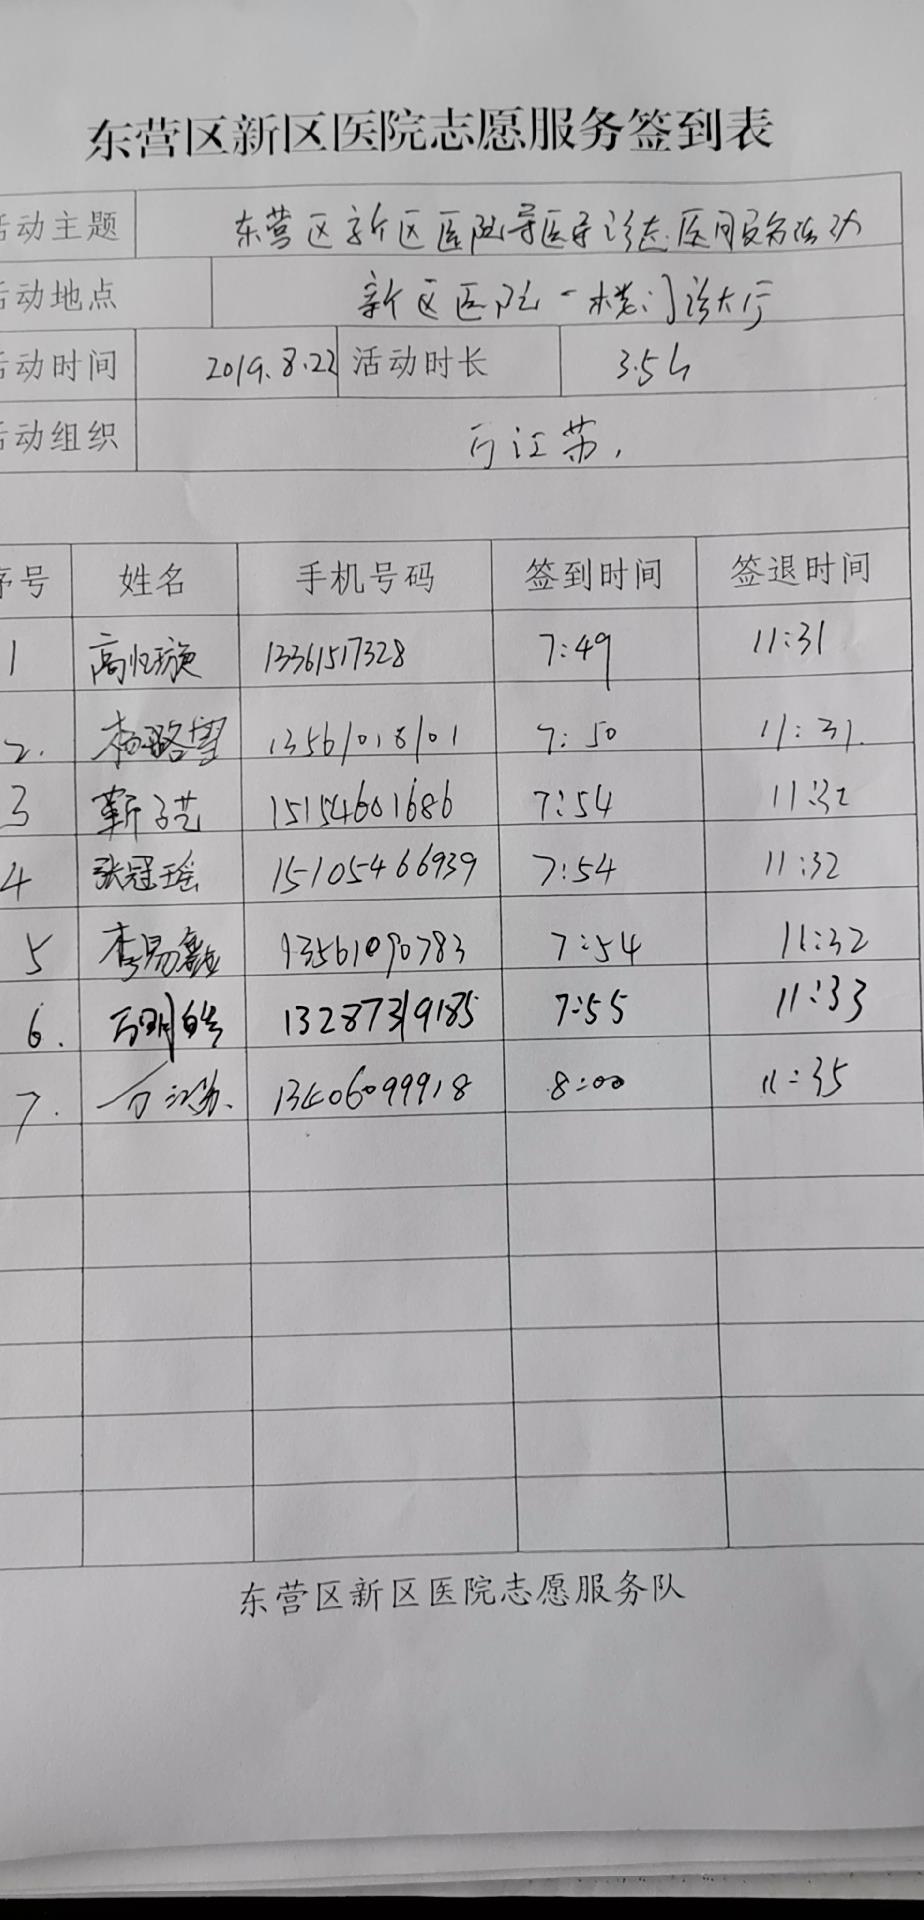 东营区新区医院志愿服务签到表
活动主题 东营区新区医院导医导诊志愿服务活动
活动地点 新区医院一楼门诊大厅
活动时间 2019.8.22 活动时长 3.5h
活动组织 万江苏.
序号 姓名 手机号码 签到时间 签退时间
1 高忆璇 13361517328 7:49 11:31
2. 杨 13561018101 7:50 11:31.
3 靳子艺 15154601686 7:54 11:32
4 张冠瑶 15105466939 7:54 11:32
5 李易鑫 13561090783 7:54 11:32
6. 明皓 13287319185 7:55 11:33
7. 万江苏. 13406099918 8:00 11:35
东营区新区医院志愿服务队